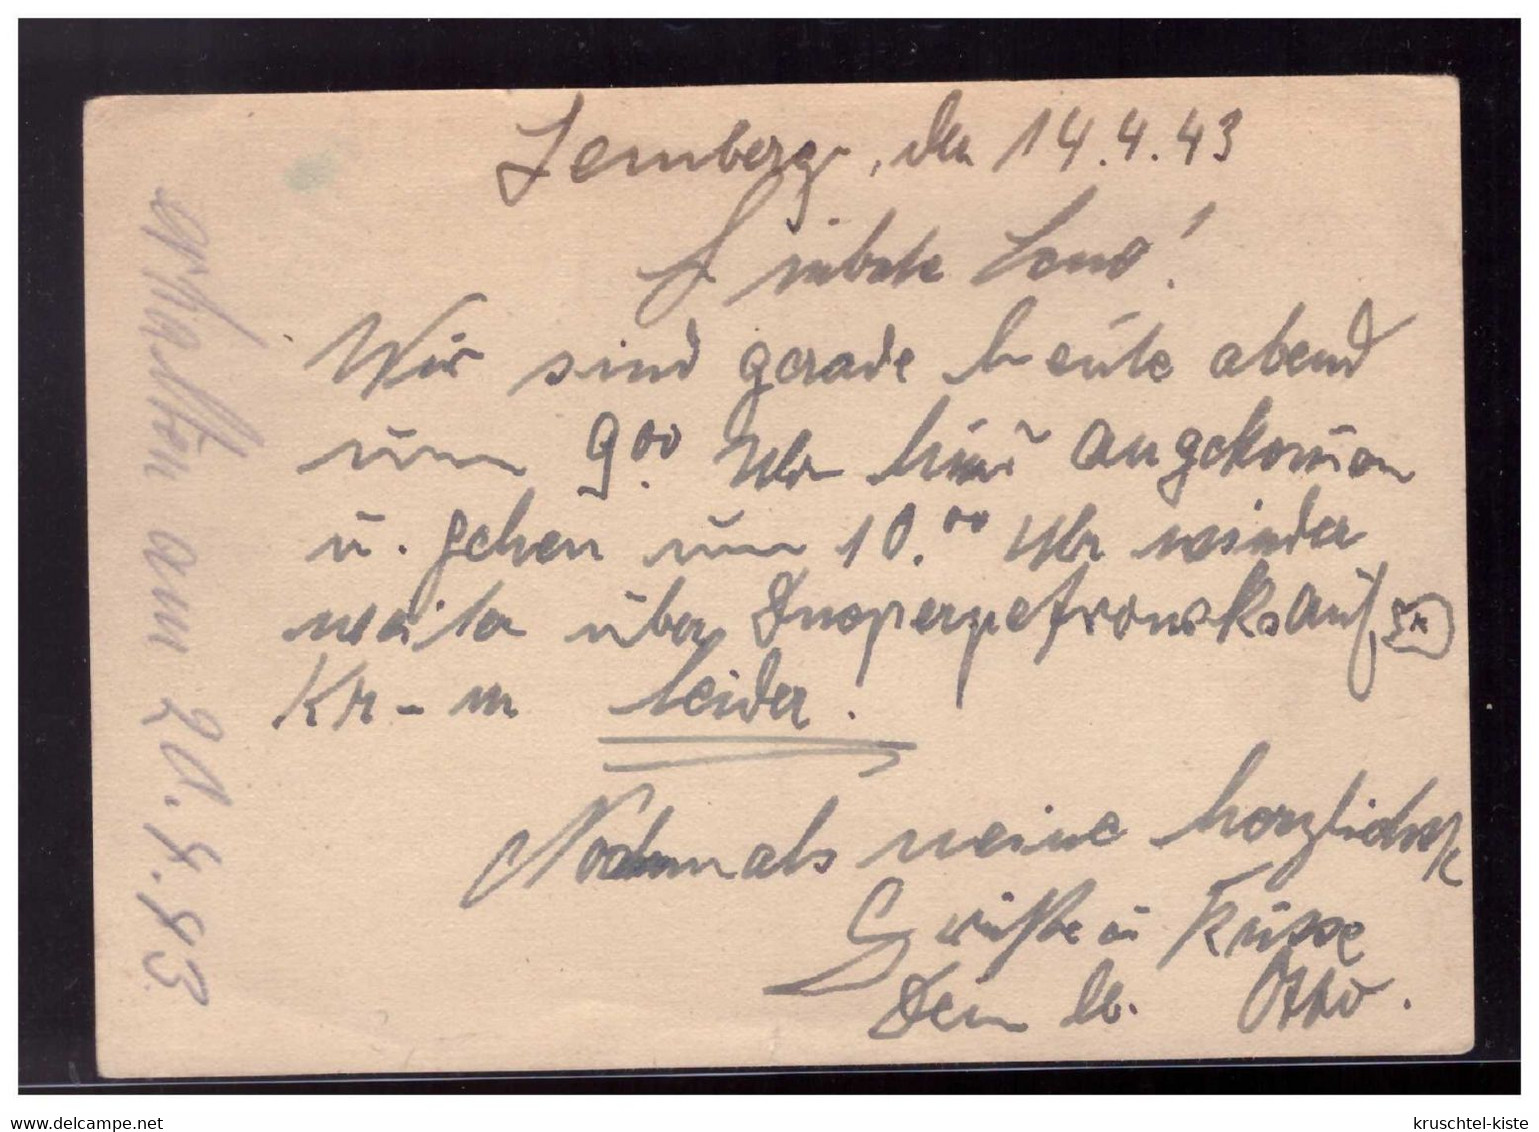 Lemberg, den 14.4.43
Liebste
Wir sind gerade heute abend
um 9.00 Uhr hier angekommen
u. gehen um 10.00 Uhr wieder
weiter über Dnoperpetrowsk auf
Kr-m leider.
Nochmals meine herzlichste
Grüße u Küsse
Dein lb. Otto.
erhalten am 20.4.43
kruschtel-kiste